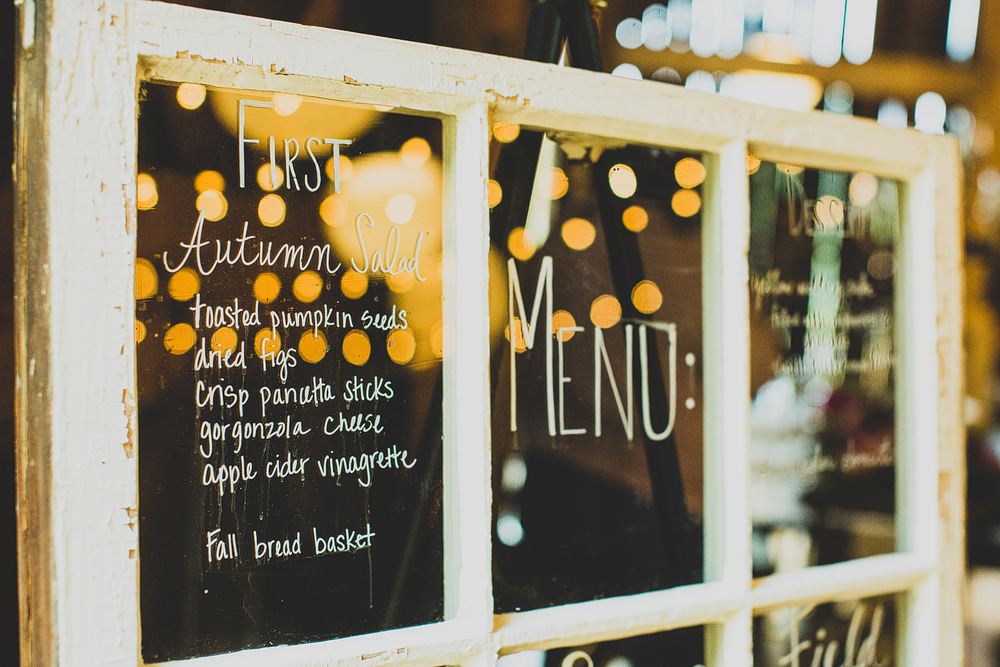 First
Autumn Salad
toasted pumpkin seeds
dried figs
crisp pancetta sticks
gorgonzola cheese
apple cider vinagrette
Fall bread basket
MENU:
Dessert
Field